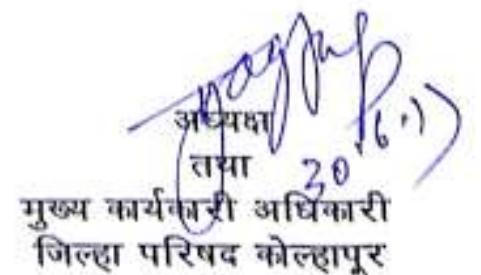 अध्यक्ष
तथा
मुख्य कार्यकारी अधिकारी
जिल्हा परिषद कोल्हापूर